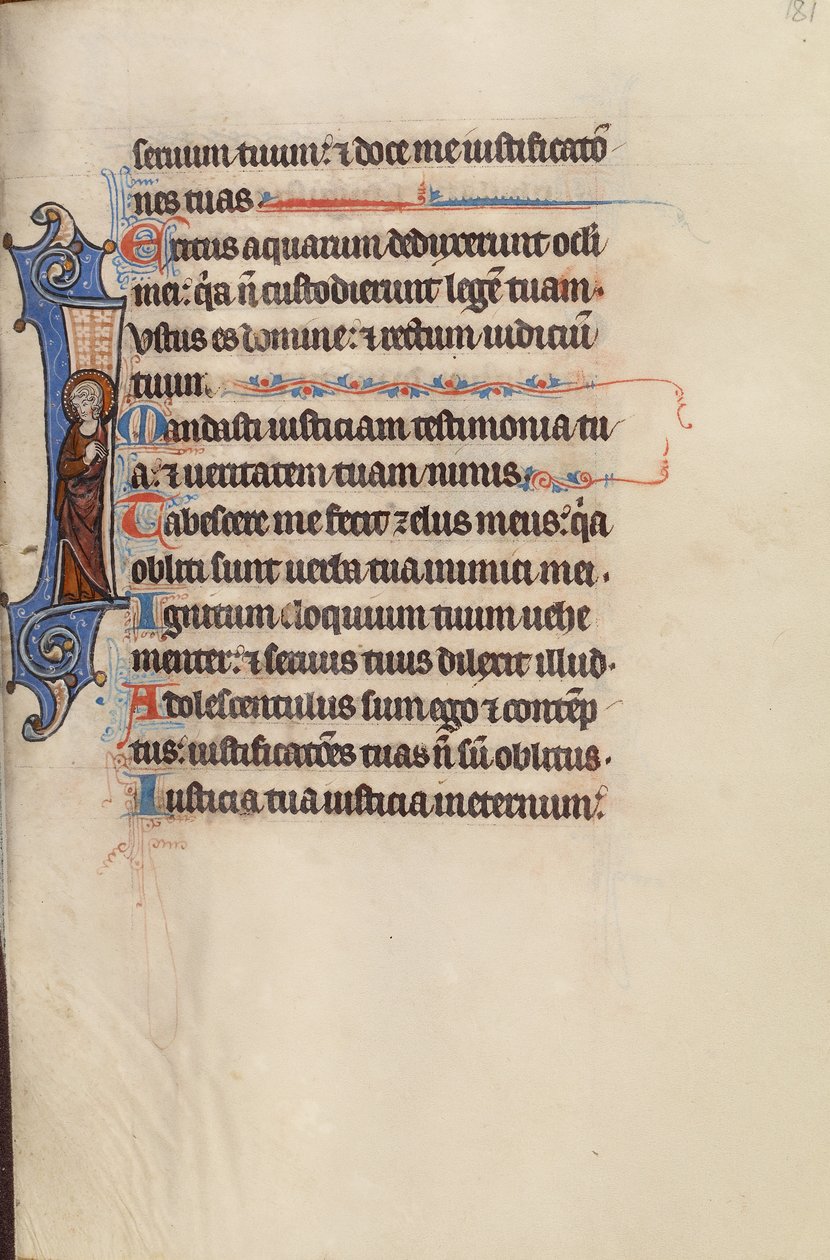 181
seruum tuum: ⁊ doce me iustificatō
nes tuas.
Exitus aquarum deduxerunt ocli
mei: q̇a n̄ custodierunt legē tuam.
Iustus es domine: ⁊ rectum iudiciū
tuum.
Mandasti iusticiam testimonia tu
a: ⁊ ueritatem tuam nimis.
Tabescere me fecit zelus meus: q̇a
obliti sunt uerba tua inimici mei.
Ignitum eloquium tuum uehe
menter: ⁊ seruus tuus dilexit illud.
Adolescentulus sum ego ⁊ contēp
tus: iustificatōes tuas n̄ sū oblitus.
Iusticia tua iusticia in eternum: